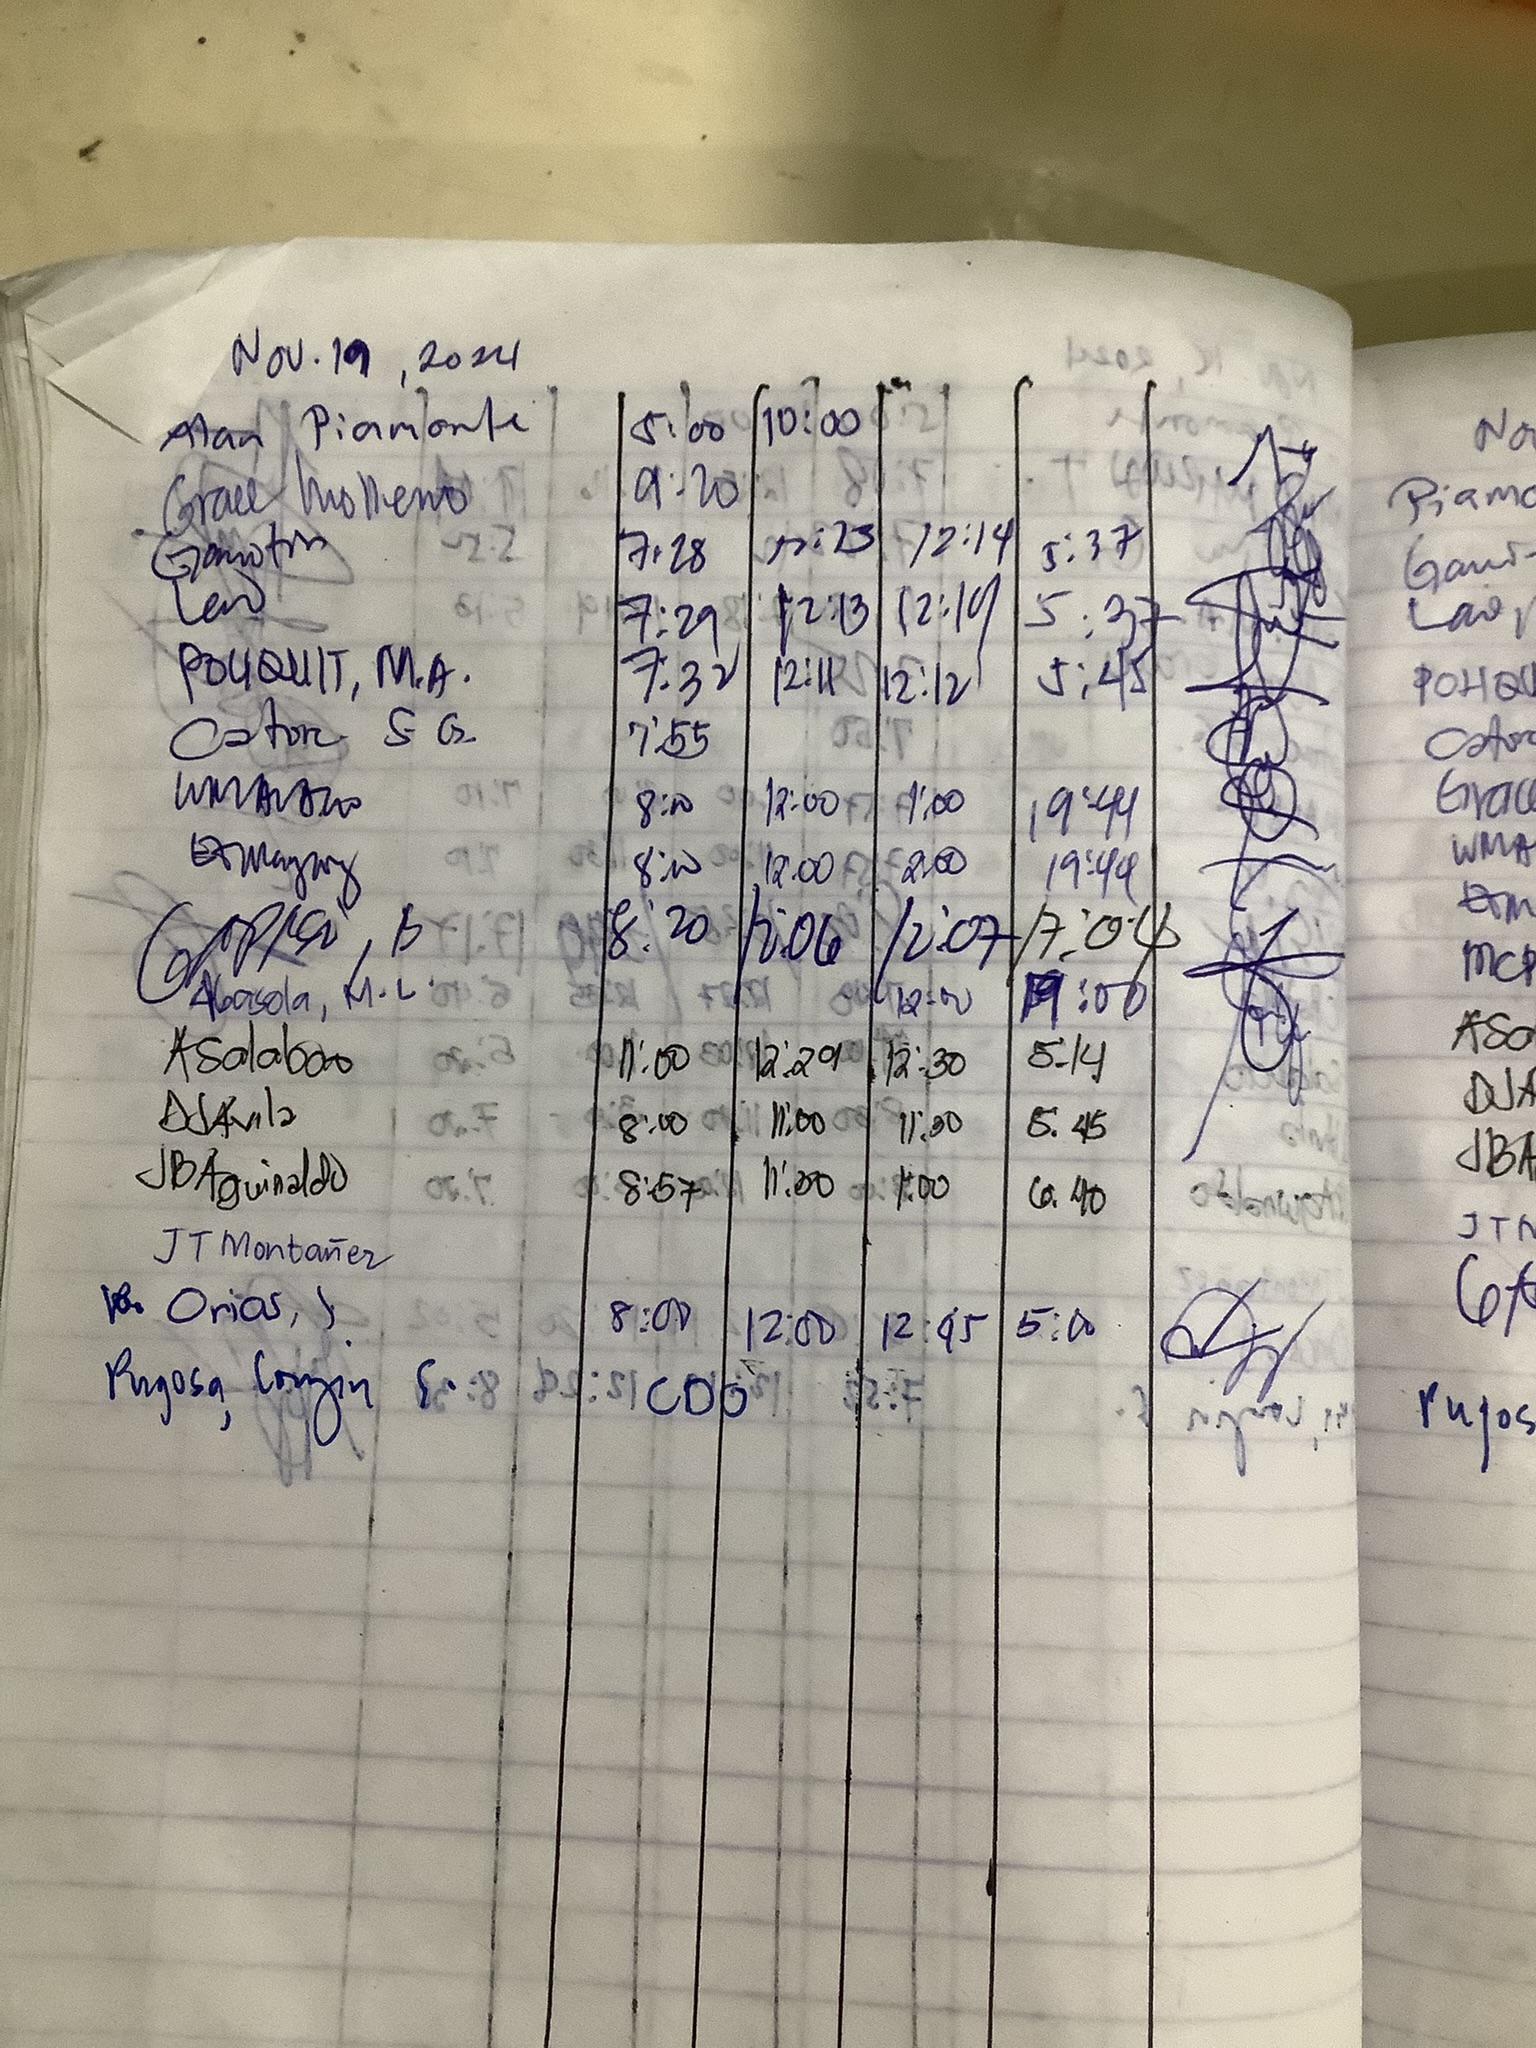 Nov. 19, 2024
Alan Piamonte 5:00 10:00
Grace 9:20
7:28 12:14 5:37
7:29 12:13 12:14 5:37
POHQUIT, M.A. 7:32 12:11 12:12 5:45
Cator S G. 7:55
8:00 12:00 1:00 19:44
8:00 12:00 2:00 19:44
8:20 12:06 12:07 17:04
Abasola, M.L. 12:00 19:00
ASalabao 11:00 12:29 12:30 5:14
DJAvila 8:00 11:00 11:30 5:45
JBAguinaldo 8:57 11:00 1:00 6:40
JTMontañez
Orias, J. 8:00 12:00 12:45 5:00
Pugosa, Longin S. CDO
Nov
Piamo
POHQU
Cator
Grace
WMA
MCP
ASa
DJA
JBA
JTM
Pugos